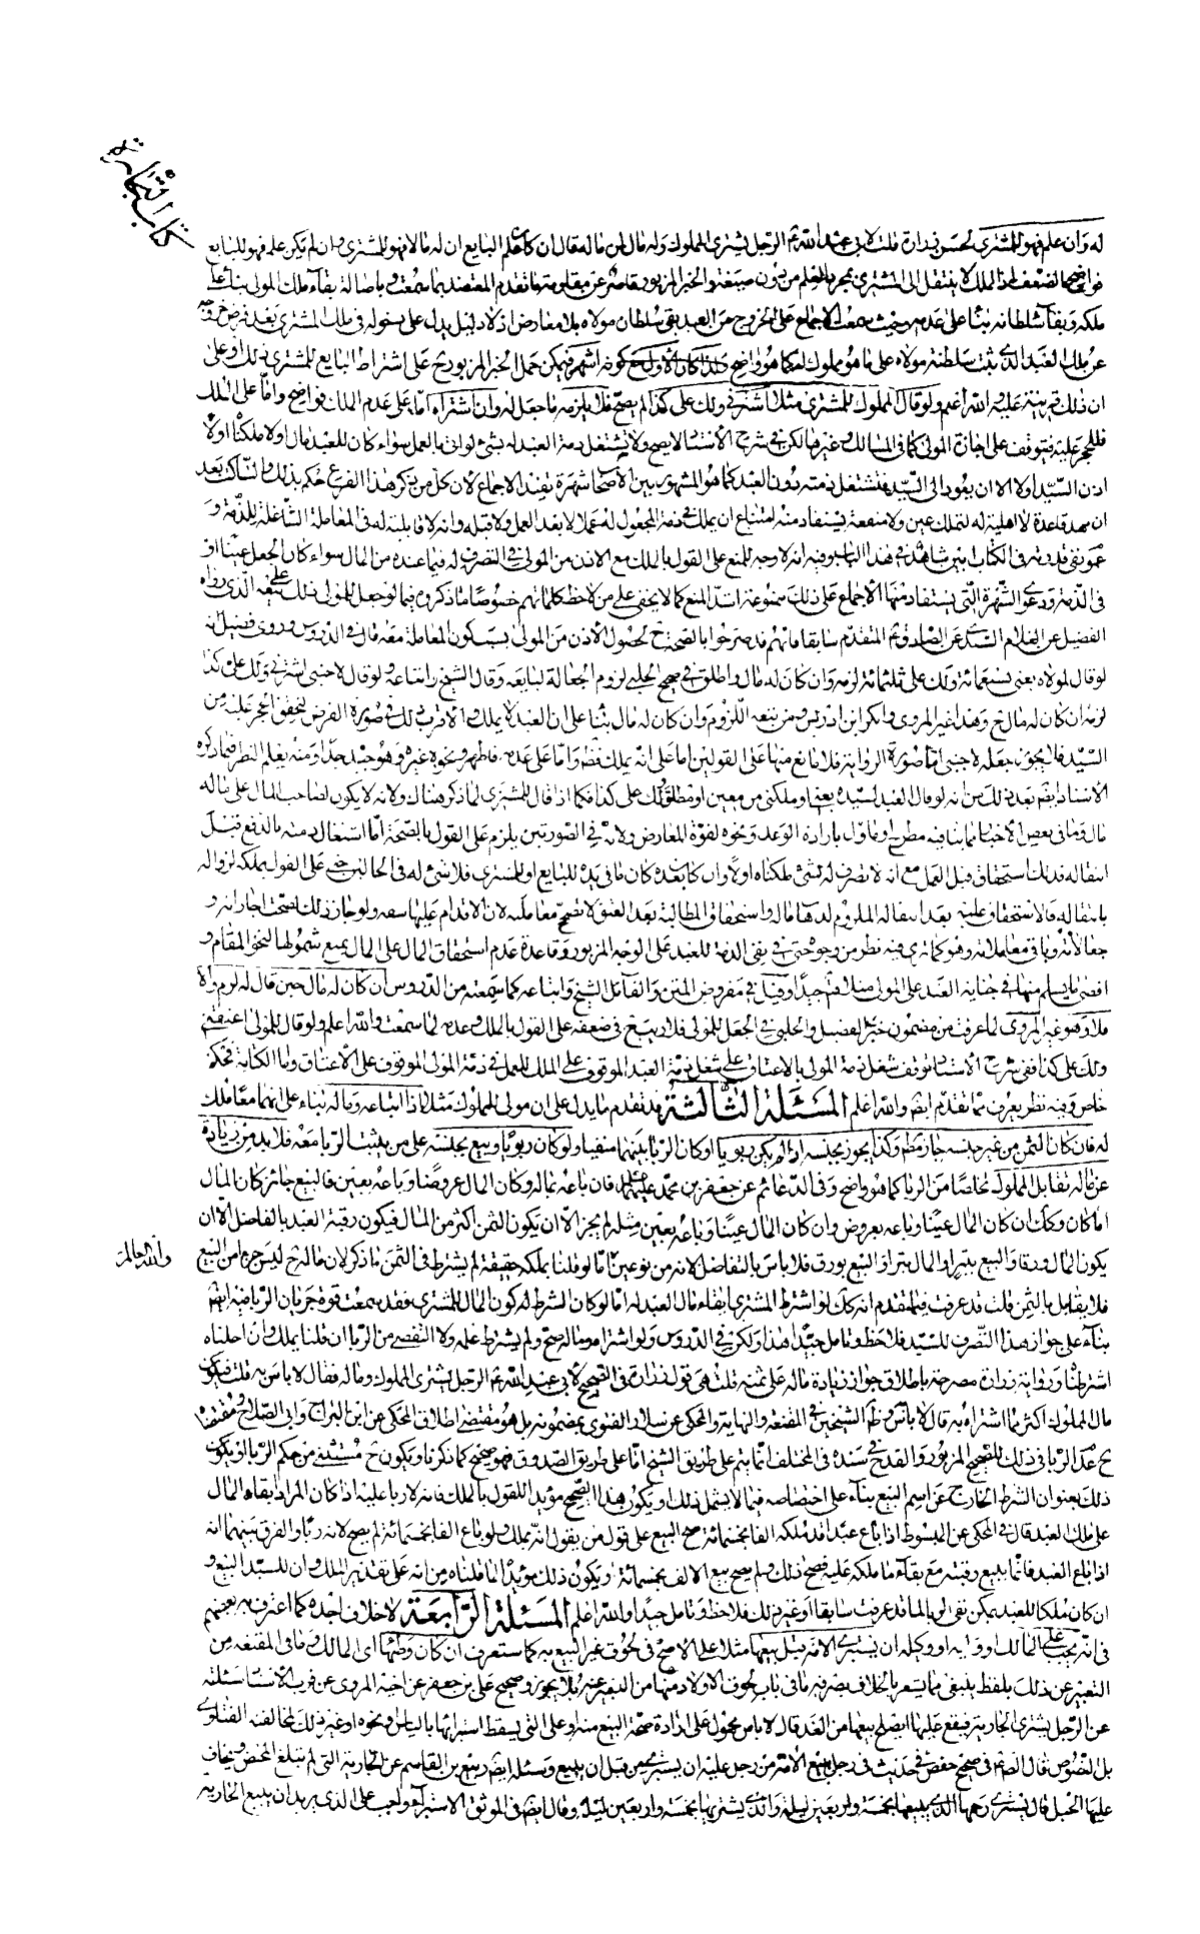 كتاب التجارة
له وان علم فهو للمشترى لحسن زرارة قلت لابى عبد الله ع الرجل يشترى المملوك وله مال لمن ماله فقال ان كان علم البايع ان له مالا فهو للمشترى وان لم يكن علم فهو للبايع
فواضح الضعف لان الملك لا ينتقل الى المشترى بمجرد العلم من دون صيغة والخبر المزبور قاصر عن مقاومة ما تقدم المعتضد بما سمعت و باصالة بقاء ملك المولى بناء على
ملكه وبقاء سلطانه بناء على عدمه وحيث سمعت الاجماع على الخروج من العبد بقى سلطان مولاه بلا معارض اذ لا دليل يدل على دخوله فى ملك المشترى بعد فرض خروجه
عن ملك العبد الذى ثبت سلطنة مولاه على ما هو مملوك له كما هو واضح الاول اشهر فيمكن حمل الخبر المزبور ح على اشتراط البايع للمشترى ذلك او على
ان ذلك قرينة عليه والله اعلم ولو قال المملوك للمشترى مثلا اشترنى ولك على كذا لم يصح فلا يلزمه ما جعل له وان اشتراه اما على عدم الملك فواضح واما على الملك
فللحجر عليه فيتوقف على اجازة المولى كما فى المسالك وغيرها لكن فى شرح الاستاد لا يصح ولا تشتغل ذمة العبد له بشئ لو اتى بالعمل سواء كان للعبد مال اولا ملكناه اولا
اذن السيد اولا الا ان يعود الى السيد فتشتغل ذمته دون العبد كما هو المشهور بين الاصحاب شهرة تفيد الاجماع لان كل من ذكر هذا الفرع حكم بذلك والساكت بعد
ان مهد قاعدة لا اهلية له لتملك عين ولا منفعة يستفاد منه امتناع ان يملك فى ذمة المجعول له عملا لا بعد العمل ولا قبله وانه لا قابلية له فى المعاملة الشاغلة للذمة و
عموم نفى قدرته فى الكتاب ابين شاهد فى هذا الباب وفيه انه لا وجه للمنع على القول بالملك مع الاذن من المولى فى التصرف له فيما عنده من المال سواء كان الجعل عينا او
فى الذمة ودعوى الشهرة التى يستفاد منها الاجماع على ذلك ممنوعة اشد المنع كما لا يخفى على من لاحظ كلماتهم خصوصا ما ذكروه فيما لو جعل للمولى ذلك على بيعه الذى رواه
الفضيل عن الغلام السندى عن الصادق ع المتقدم سابقا فانهم قد صرحوا بالصحة ح لحصول الاذن من المولى بسكون المعاملة معه قال فى الدروس وروى فضيل انه
لو قال لمولاه بعنى بسبعمائة ولك على ثلثمائة لزمه وان كان له مال واطلق فى صحيح الحلبى لزوم الجعالة لبايعه وقال الشيخ واتباعه ولو قال لاجنبى اشترنى ولك على كذا
لزمه ان كان له مال ح وهذا غير المروى وانكر ابن ادريس ومن تبعه اللزوم وان كان له مال بناء على ان العبد لا يملك والاقرب ذلك فى صورة الفرض لتحقق الحجر عليه من
السيد فلا يجوز جعله لاجنبى اما صورة الرواية فلا مانع منها على القولين اما على انه يملك فظ واما على عدمه فاظهر ونحوه غيره وهو جيد جدا ومنه يعلم النظر فيما ذكره
الاستاد ايضا بعد ذلك من انه لو قال العبد لسيده بعنى او ملكنى من معين او مطلق ولك على كذا فكما اذا قال للمشترى لما ذكر هناك ولانه لا يكون لصاحب المال على ماله
مال وما فى بعض الاخبار مما ينافيه مطرح او مأول بارادة الوعد ونحوه لقوة المعارض ولانه فى الصورتين يلزم على القول بالصحة اما اشتغال ذمته بالدفع قبل
انتقاله فذلك استحقاق قبل العمل مع انه لا تصرف له بشئ ملكناه اولا وان كان بعده كان ما فى يده للبايع او للمشترى فلا شئ له فى الحالين حتى على القول بملكه لزواله
بانتقاله فلا استحقاق عليه بعد انتقاله الملزوم لدها ماله واستحقاق المطالبة بعد العتق لا تصح معاملته لان الاقدام عليها سفه ولو جاز ذلك لصحت اجاراته و
جعالاته وباقى معاملاته وهو كما ترى فيه نظر من وجوه حتى فى نفى الذمة للعبد على الوجه المزبور وقاعدة عدم استحقاق المال على المال يمنع شمولها لنحو المقام و
اقصى ما يسلم منها فى جناية العبد على المولى مثلا فتأمل جيدا وقيل فى مفروض المتن والقائل الشيخ واتباعه كما سمعته من الدروس ان كان له مال حين قال له لزم والا
فلا وهو غير المروى لما عرفت من مضمون خبرى الفضيل والحلبى فى الجعل للمولى فلا ريب فى ضعفه على القول بالملك وعدمه لما سمعت والله اعلم ولو قال للمولى اعتقنى
ولك على كذا ففى شرح الاستاد توقف شغل ذمة المولى بالاعتاق على شغل ذمة العبد الموقوف على الملك للعمل فى ذمة المولى الموقوف على الاعتاق واما الكتابة فحكم
خاص وفيه نظر يعرف مما تقدم ايضا والله اعلم المسئلة الثالثة قد تقدم ما يدل على ان مولى المملوك مثلا اذا ابتاعه وماله بناء على انهما معا ملك
له فان كان الثمن من غير جنسه جاز مطلقا وكذا يجوز بجنسه اذا لم يكن ربويا او كان الربا بينهما منفيا ولو كان ربويا وبيع بجنسه على من يثبت الربا معه فلا بد من زيادة
عن ماله تقابل المملوك تخلصا من الربا كما هو واضح وفى الدعائم عن جعفر بن محمد عليهما السلام فان باعه بماله وكان المال عروضا وباعه بعين فالبيع جائز كان المال
اما كان وكك ان كان المال عينا وباعه بعروض وان كان المال عينا وباعه بعين مثله لم يجز الا ان يكون الثمن اكثر من المال فيكون رقبة العبد بالفاضل الا ان
يكون المال ورقا والبيع بتبر او المال تبرا والبيع بورق فلا باس بالتفاضل لانه من نوعين اما لو قلنا بملكه حقيقة لم يشترط فى الثمن ما ذكر لان ماله ح ليس جزءا من المبيع
والله العالم
فلا يقابل بالثمن قلت قد عرفت فيما تقدم انه كك لو اشترط المشترى ابقاء مال العبد له اما لو كان الشرط له كون المال للمشترى فقد سمعت قوة جريان الربا فيه ايضا
بناء على جواز هذا التصرف للسيد فلاحظ وتامل جيدا هذا ولكن فى الدروس ولو اشتراه وماله صح ولم يشترط علمه ولا التقصى من الربا ان قلنا يملك وان احلناه
اشترطنا ورواية زرارة مصرحة باطلاق جواز زيادة ماله على ثمنه قلت هى قول زرارة فى الصحيح لابى عبد الله ع الرجل يشترى المملوك وماله فقال لا باس به قلت فيكون
مال المملوك اكثر مما اشتراه به قال لا باس وظ الشيخين فى المقنعة والنهاية والمحكى عن سلار الفتوى بمضمونه بل هو مقتضى اطلاق المحكى عن ابن البراج وابى الصلاح ومقتضاه
ح عدم الربا فى ذلك للصحيح المزبور والقدح فى سنده فى المختلف انما يتم على طريق الشيخ اما على طريق الصدوق فهو صحيح كما ذكرنا ويكون ح مستثنى من حكم الربا او يكون
ذلك بعنوان الشرط الخارج عن اسم البيع بناء على اختصاصه فيما لا يشمل ذلك او يكون هذا الصحيح مؤيدا للقول بالملك فانه لا ربا عليه اذا كان المراد ابقاء المال
على ملك العبد قال فى المحكى عن المبسوط اذا باع عبدا قد ملكه الفا بخمسمائة صح البيع على قول من يقول انه يملك ولو باع الفا بخمسمائة لم يصح لانه ربا والفرق بينهما انه
اذا باع العبد فانما يبيع رقبته مع بقاء ما ملكه عليه فصح ذلك ولم يصح بيع الالف بخمسمائة او يكون ذلك مؤيدا لما قلناه من انه على تقدير الملك وان للسيد البيع و
ان كان ملكا للعبد يمكن نفى الربا لما قد عرفت سابقا او غير ذلك فلاحظ وتامل جيدا والله اعلم المسئلة الرابعة لا خلاف اجده كما اعترف به بعضهم
فى انه يجب على المالك او وليه او وكيله ان يستبرئ الامة قبل بيعها مثلا على الاصح فى لحوق غير البيع به كما ستعرف ان كان وطئها اى المالك وما فى المقنعة من
التعبير عن ذلك بلفظ ينبغى مما يشعر بالخلاف يصرفه ما فى باب لحوق الاولاد منها من التعبير عنه بلا يجوز وصحيح على بن جعفر عن اخيه المروى عن قرب الاسناد سئلته
عن الرجل يشترى الجارية فيقع عليها ايصلح بيعها من الغد قال لا باس محمول على ارادة صحة البيع منه او على التى يسقط استبراؤها بالياس ونحوه او غير ذلك لمخالفته الفتاوى
بل النصوص قال الصادق ع فى صحيح حفص فى حديث فى رجل يبيع الامة من رجل عليه ان يستبرئ من قبل ان يبيع وسئله ايضا ربيع بن القاسم عن الجارية التى لم تبلغ المحيض ويخاف
عليها الحبل قال يستبرئ رحمها الذى يبيعها بخمسة واربعين ليلة والذى يشتريها بخمسة واربعين ليلة وقال ايضا فى الموثق الاستبراء واجب على الذى يريد ان يبيع الجارية